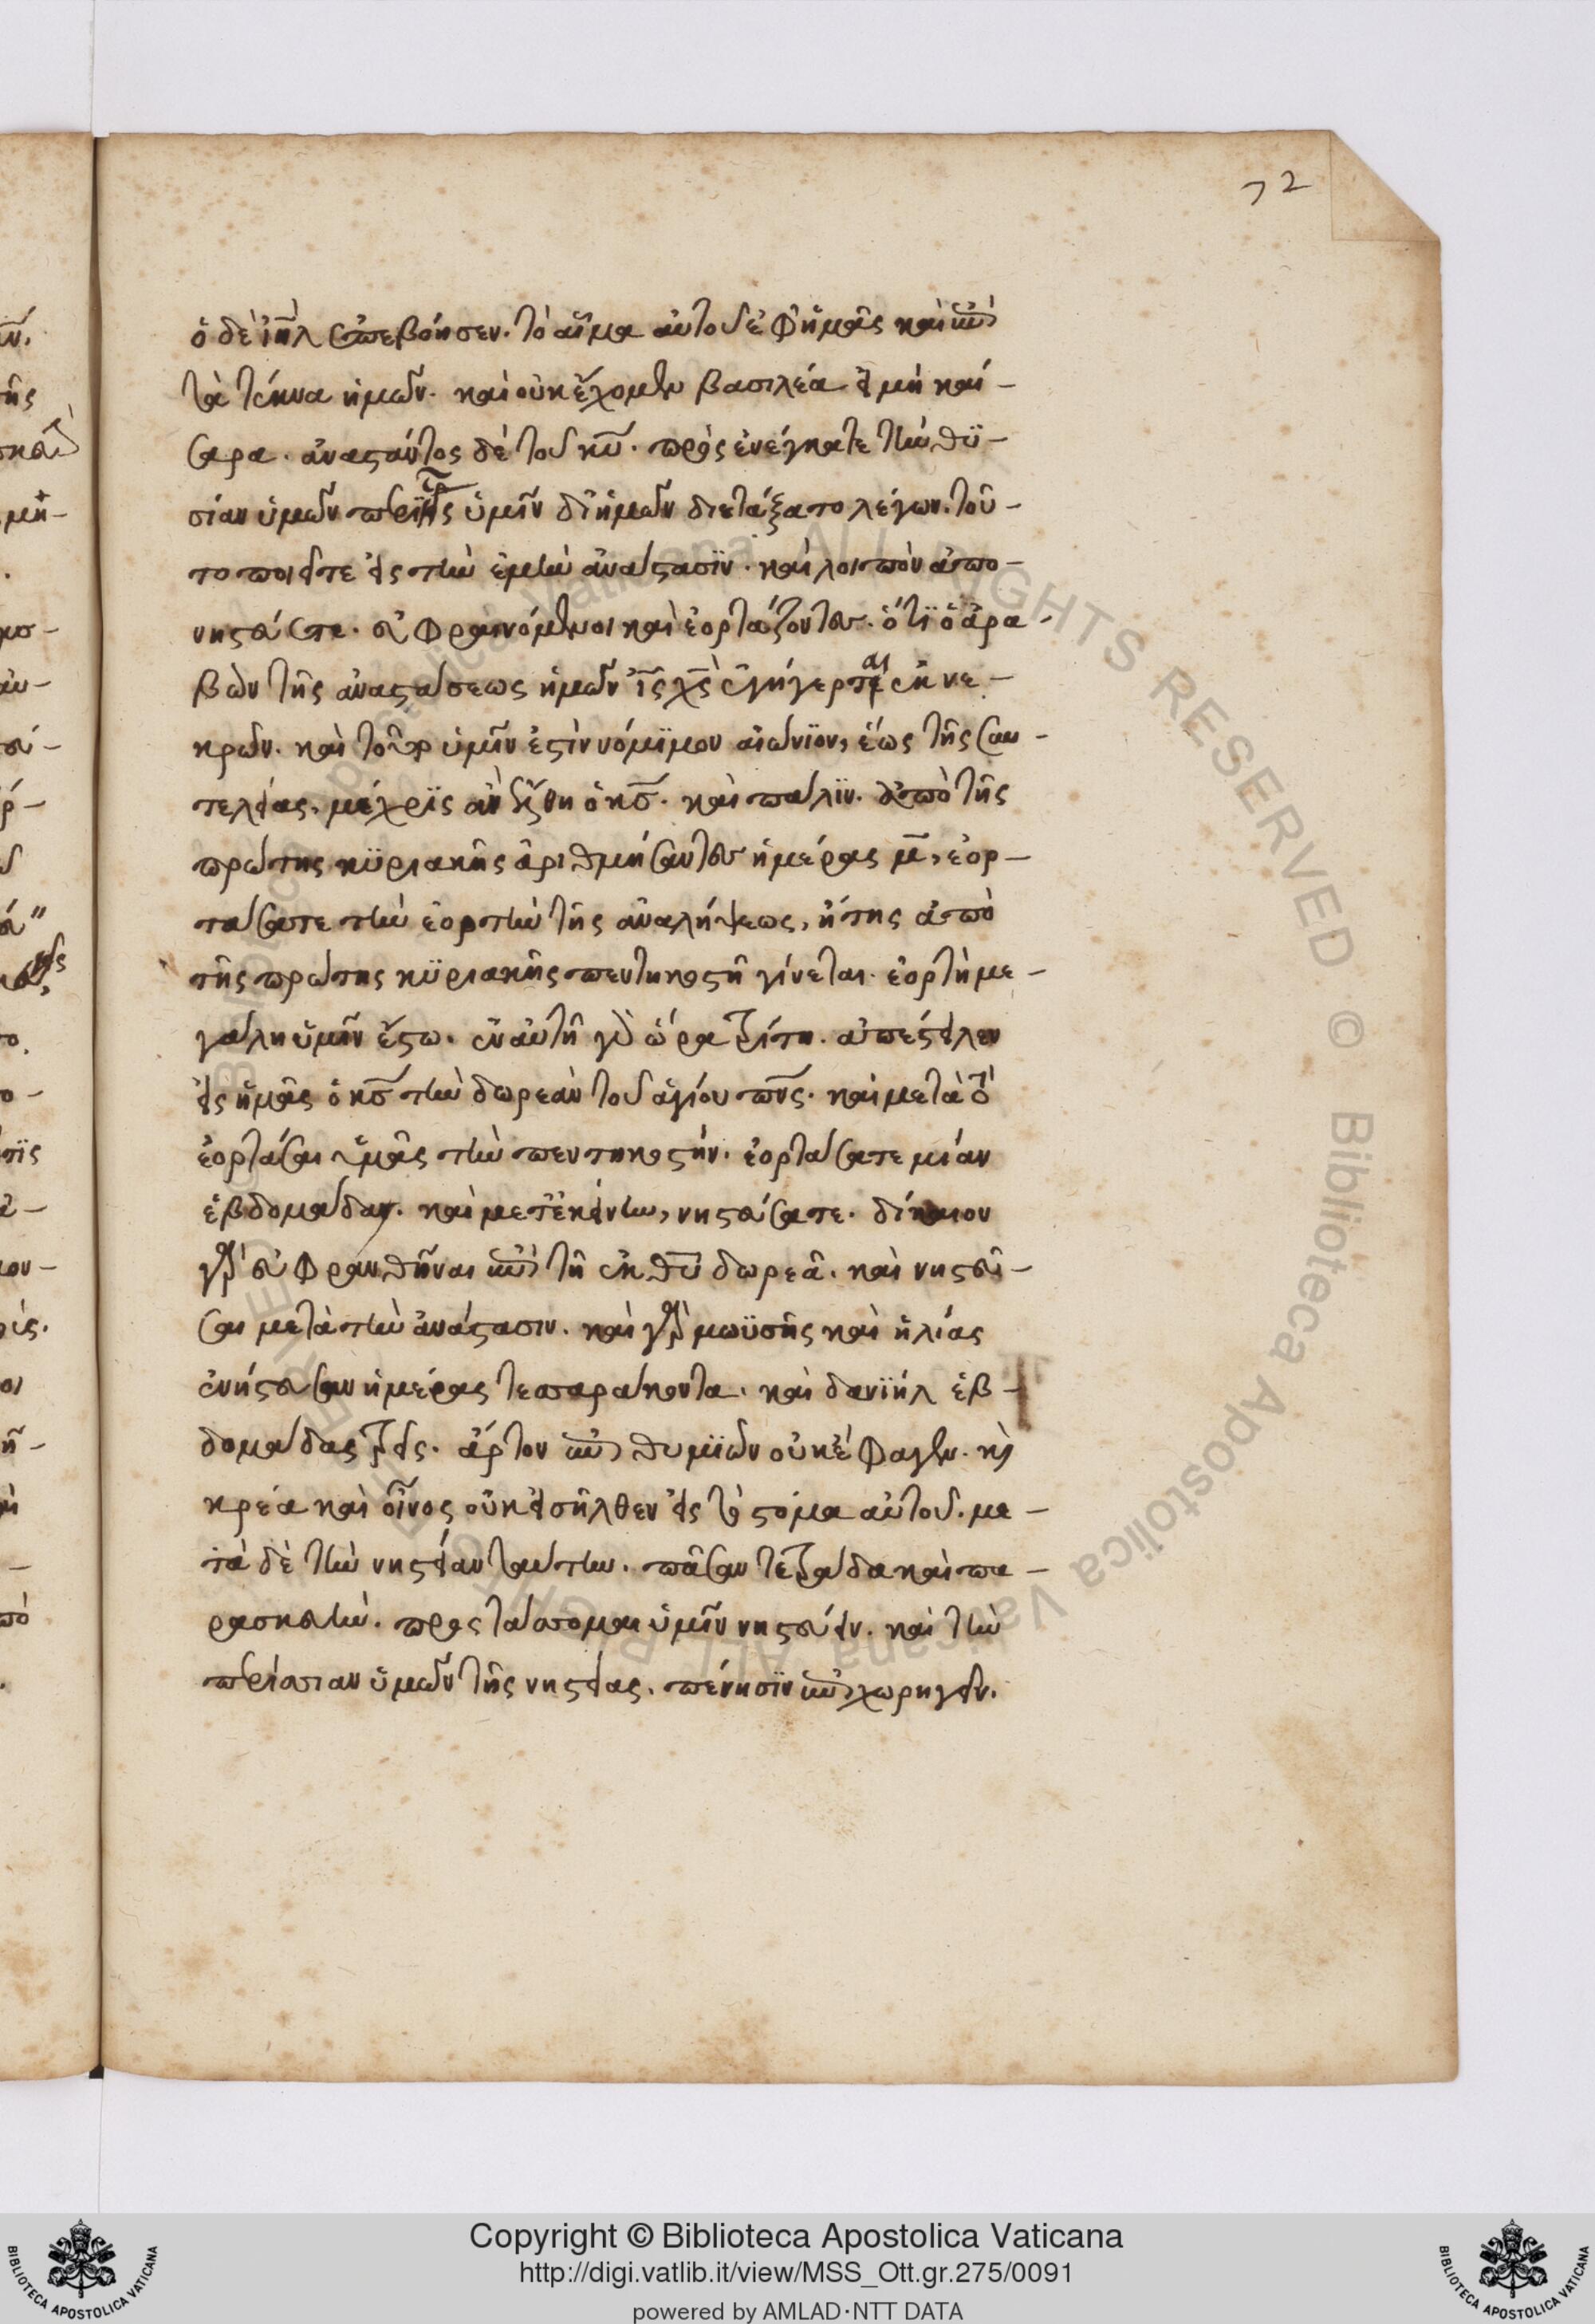 72
ὁ δὲ ἰη̅λ ἐπεβόησεν. τὸ αἷμα αὐτοῦ ἐφ' ἡμᾶς καὶ ἐπὶ
τὰ τέκνα ἡμῶν. καὶ οὐκ ἔχομεν βασιλέα εἰ μὴ καί-
σαρα. ἀναστάντος δὲ τοῦ κυ̅. προσενέγκατε τὴν θϋ-
σίαν ὑμῶν περὶ ὑμῖν δι' ἡμῶν διετάξατο λέγων. τοῦ-
το ποιεῖτε εἰς τὴν ἐμὴν ἀνάστασϊν. καὶ λοιπὸν ἀπο-
νηστεύσατε. εὐφραινόμενοι καὶ ἑορτάζοντες. ὅτϊ ὁ ἀρα-
βὼν τῆς ἀναστάσεως ἡμῶν ι̅ς χ̅ς ἐγήγερται ἐκ νε-
κρῶν. καὶ τοῦτο ὑμῖν ἐστὶν νόμϊμον αἰώνϊον, ἕως τῆς συν-
τελείας, μέχρϊς ἂν ἔλθη ὁ κ̅ς. καὶ πάλϊν. ἀπὸ τῆς
πρώτης κϋριακῆς ἀριθμήσαντες ἡμέρας μ̅, ἑορ-
τάσατε τὴν ἑορτὴν τῆς ἀναλήψεως, ἥτης ἀπὸ
τῆς πρώτης κϋριακῆς πεντηκοστῆ γίνεται. ἑορτὴ με-
γάλη ὑμῖν ἔστω. ἐν αὐτῆ γὰρ ὥρα τρίτη. ἀπέστειλεν
εἰς ἡμᾶς ὁ κ̅ς τὴν δωρεὰν τοῦ ἁγίου πν̅ς. καὶ μετὰ τὸ
ἑορτάσαι ὑμᾶς τὴν πεντηκοστήν. ἑορτάσατε μίαν
ἑβδομάδαν. καὶ μετ' ἐκείνην, νηστεύσατε. δίκαιον
γὰρ εὐφρανθῆναι ἐπὶ τῆ ἐκ θυ̅ δωρεᾶ. καὶ νηστεῦ-
σαι μετὰ τὴν ἀνάστασιν. καὶ γὰρ μωϋσῆς καὶ ἠλίας
ἐνήστευσαν ἡμέρας τεσσαράκοντα. καὶ δανϊὴλ ἑβ-
δομάδας τρεῖς. ἄρτον ἐπιθυμϊῶν οὐκ ἔφαγεν. κὶ
κρέα καὶ οἶνος οὐκ εἰσῆλθεν εἰς τὸ στόμα αὐτοῦ. με-
τὰ δὲ τὴν νηστείαν ταύτην. πᾶσαν τετράδα καὶ πα-
ρασκευήν. προστάσσομαι ὑμῖν νηστεύειν. καὶ τὴν
περίσσιαν ὑμῶν τῆς νηστείας. πένησϊν ἐπιχωρηγεῖν.
Copyright © Biblioteca Apostolica Vaticana
http://digi.vatlib.it/view/MSS_Ott.gr.275/0091
powered by AMLAD·NTT DATA